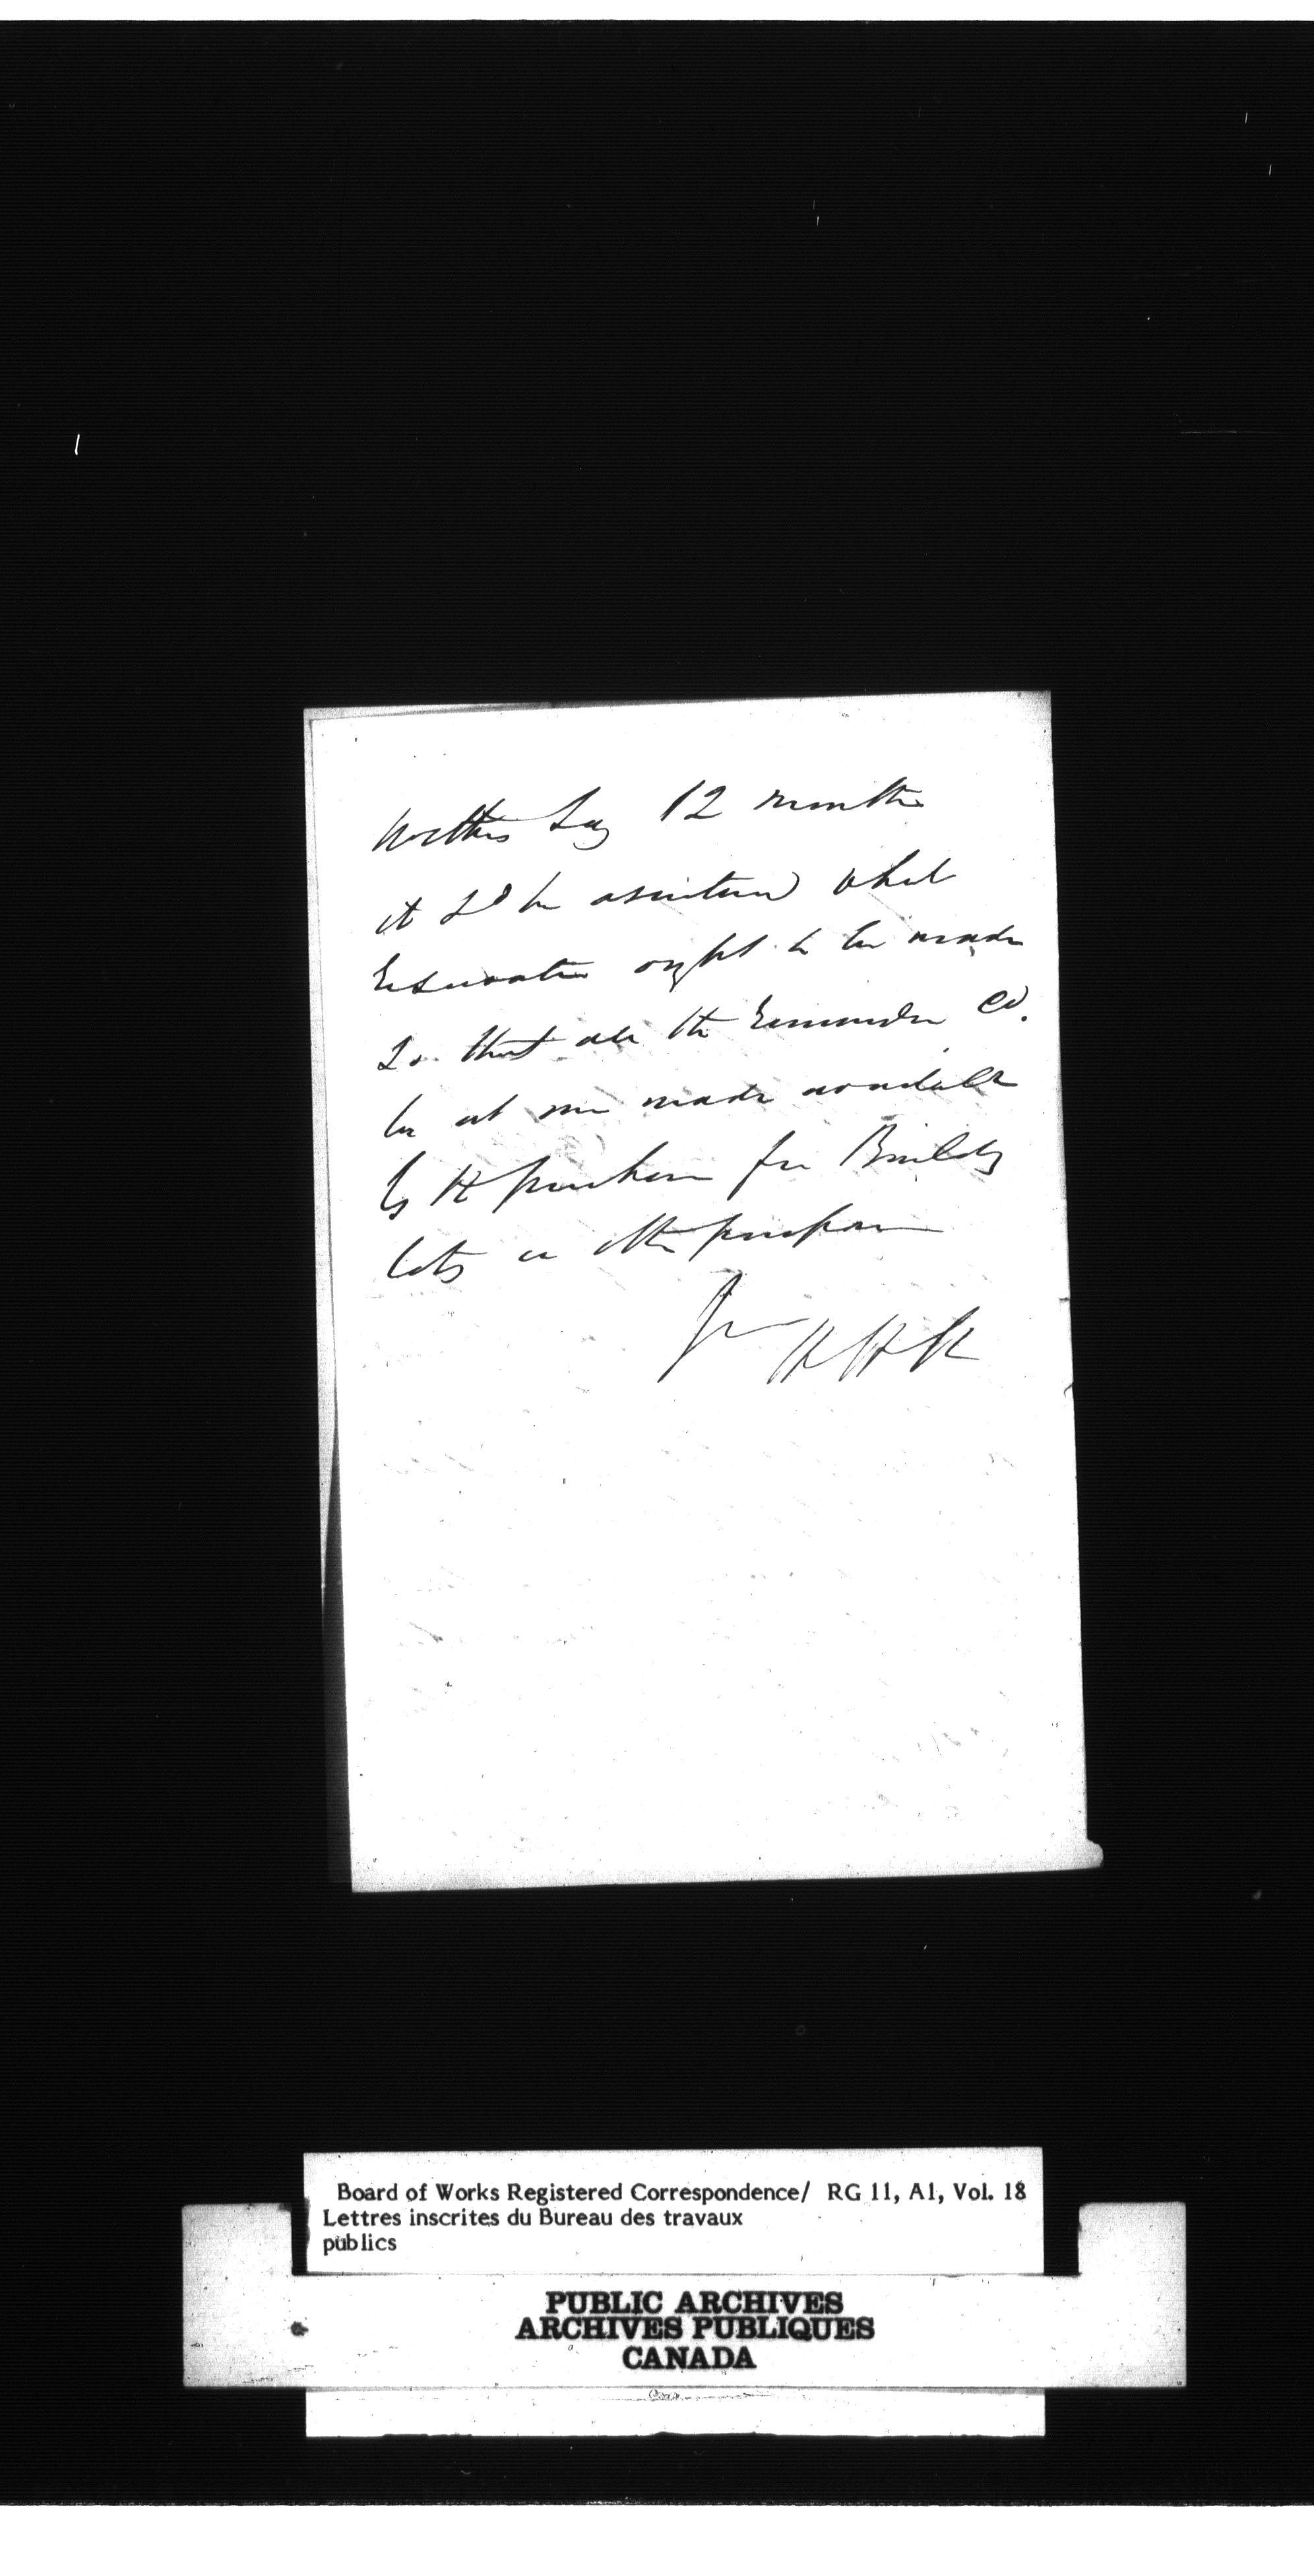 within say 12 months
it sd be ascertained what
Reservation ought to be made
So that all the Remainder cd.
be at once made available
by the purchaser for Building
lots or other purposes
Yrs HHK
Board of Works Registered Correspondence/ RG 11, A1, Vol. 18
Lettres inscrites du Bureau des travaux
publics
PUBLIC ARCHIVES
ARCHIVES PUBLIQUES
CANADA